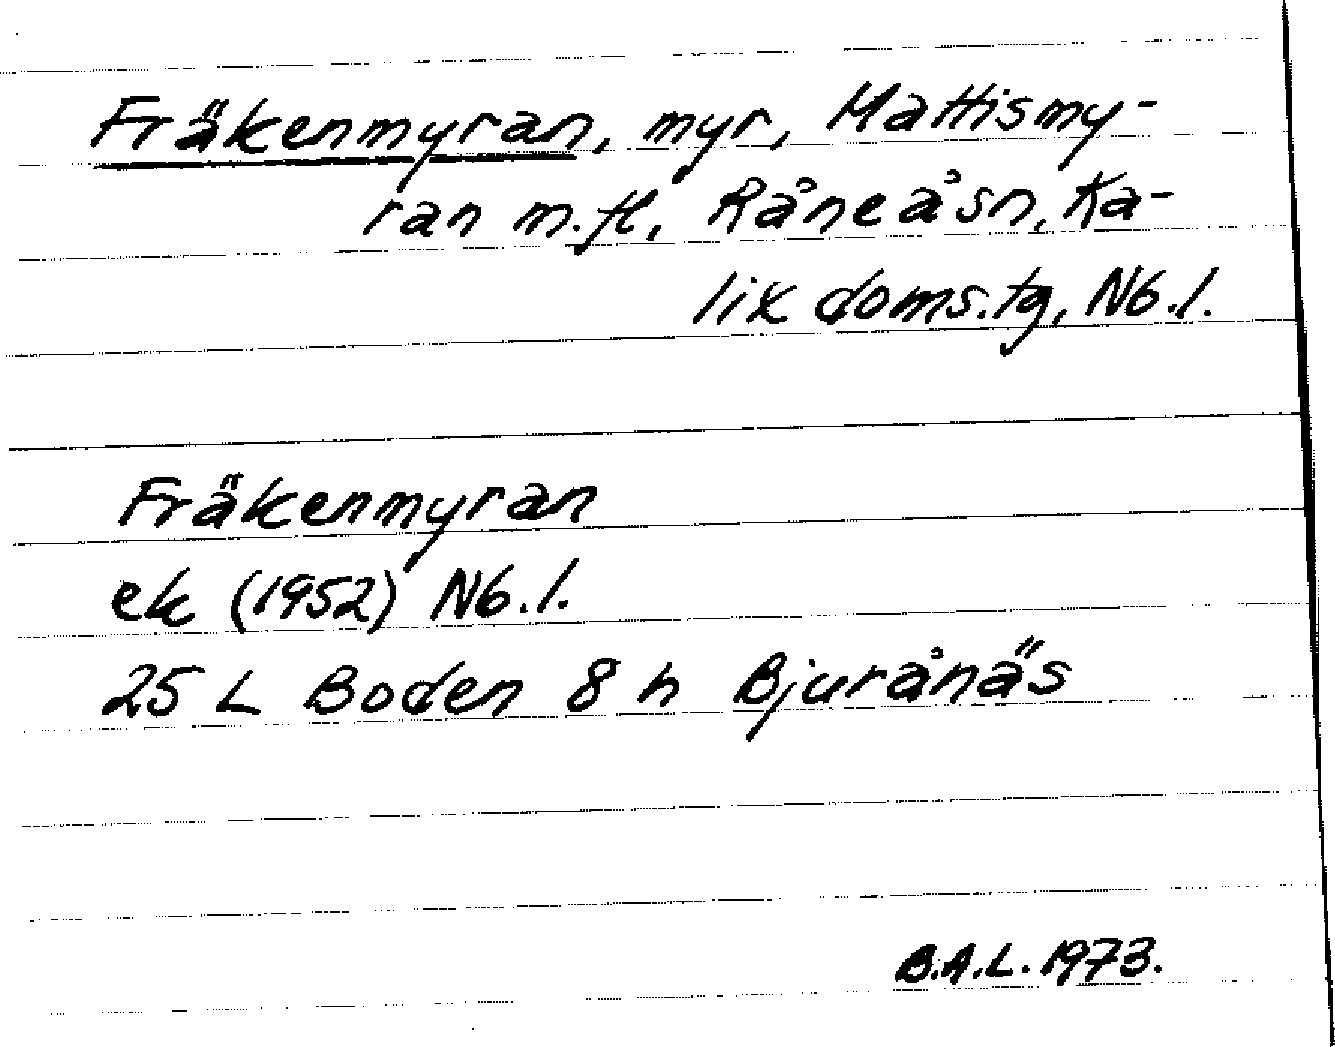 Fräkenmyran, myr, Mattismy-
ran m.fl., Råneå sn, Ka-
lix doms.tg, Nb.l.
Fräkenmyran
ek (1952) Nb.l.
25 L Boden 8 h Bjurånäs
B.A.L. 1973.